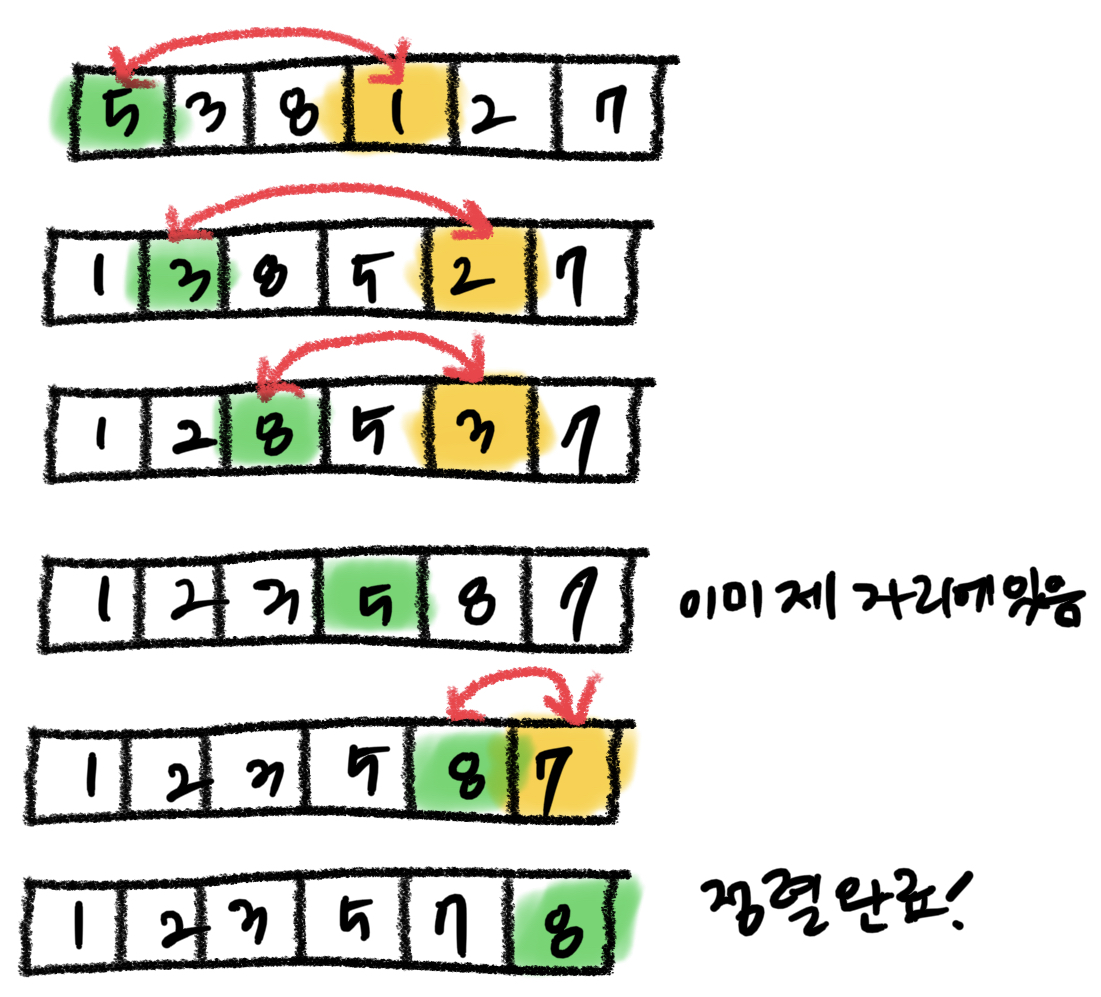 5 3 8 1 2 7
1 3 8 5 2 7
1 2 8 5 3 7
1 2 3 5 8 7 이미 제 자리에 있음
1 2 3 5 8 7
1 2 3 5 7 8 정렬 완료!